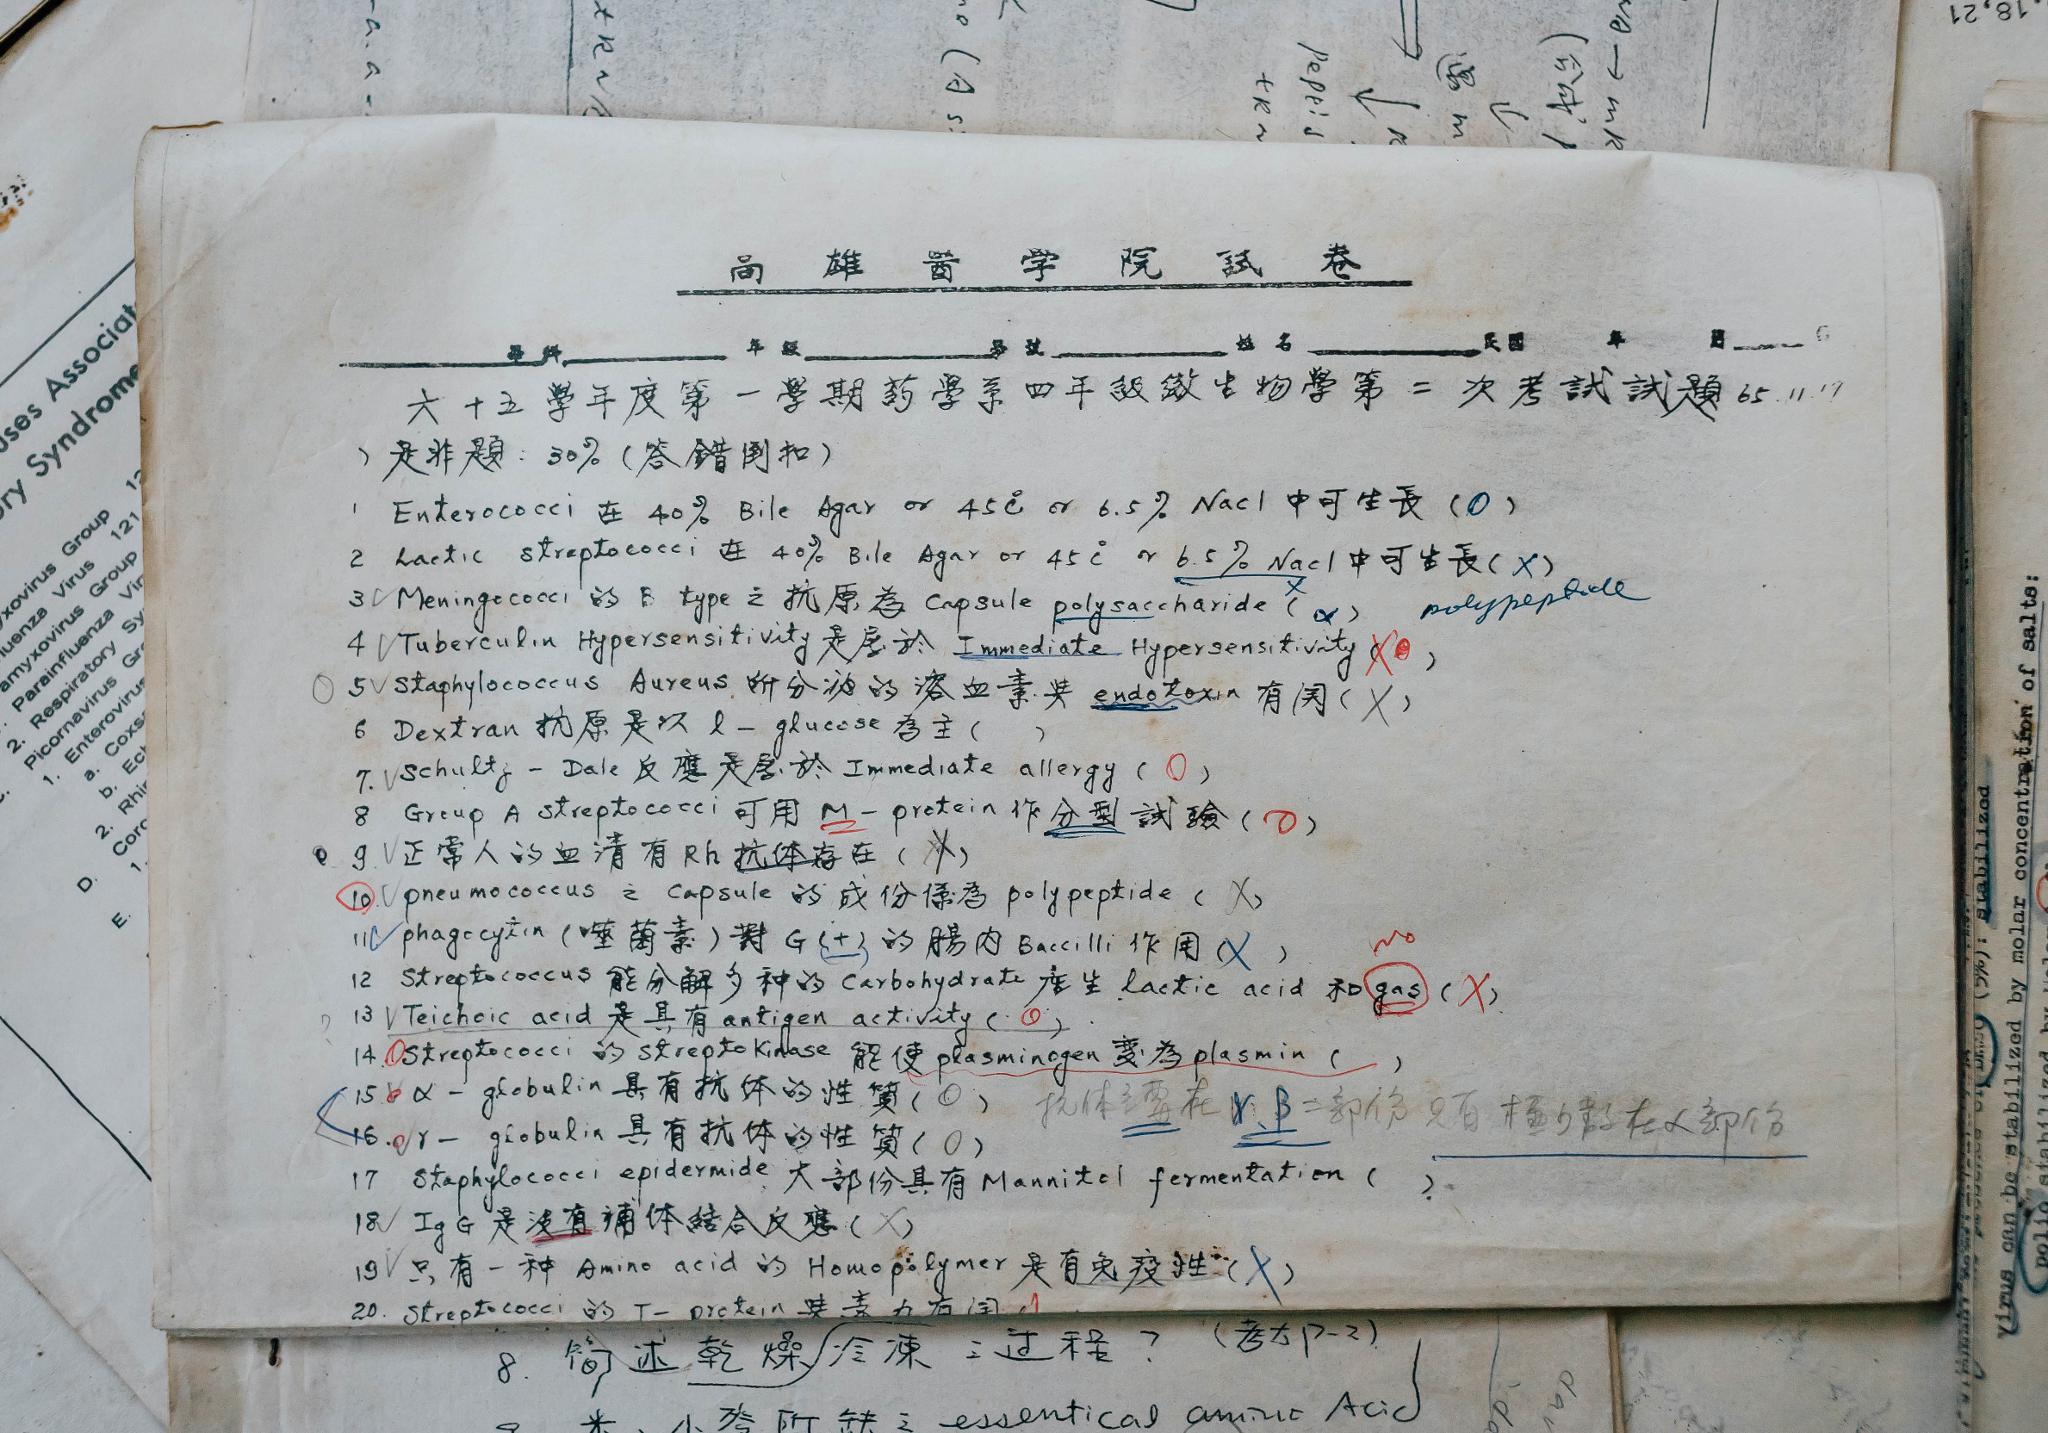 高雄醫学院試卷
學科 年級 學號 姓名 民國 年 月
六十五學年度第一學期药學系四年級微生物學第二次考試試題 65.11.17
)是非題: 30% (答錯倒扣)
1 Enterococci 在 40% Bile Agar or 45℃ or 6.5% Nacl 中可生長 (O)
2 Lactic streptococci 在 40% Bile Agar or 45℃ or 6.5% Nacl 中可生長 (X)
3 Meningococci 的 B type 之抗原為 Capsule polysaccharide ( ) polypeptide
4 Tuberculin Hypersensitivity 是屬於 Immediate Hypersensitivity (X)
5 Staphylococcus Aureus 所分泌的溶血素與 endotoxin 有関 (X)
6 Dextran 抗原是以 l-glucose 為主 ( )
7. Schultz-Dale 反應是屬於 Immediate allergy (O)
8 Group A streptococci 可用 M-protein 作分型試驗 (O)
9 正常人的血清有 Rh 抗体存在 (X)
10. pneumococcus 之 capsule 的成份係為 polypeptide (X)
11 phagocytin (噬菌素) 對 G(+) 的腸内 Baccilli 作用 (X)
No
12 Streptococcus 能分解多种的 Carbohydrate 產生 lactic acid 和 gas (X)
13 Teichoic acid 是具有 antigen activity (O)
14. Streptococci 的 streptokinase 能使 plasminogen 变為 plasmin ( )
15 α-globulin 具有抗体的性質 (O) 抗体主要在 γ.β 二部份只有極少數在 α 部份
16. γ-globulin 具有抗体的性質 (O)
17 Staphylococci epidermide 大部份具有 Mannitol fermentation ( )
18 IgG 是沒有補体結合反應 (X)
19 只有一种 Amino acid 的 Homopolymer 是有免疫性 (X)
20. Streptococci 的 T-protein 與毒力有関
8. 簡述乾燥冷凍之过程? (考古 P-2)
essentical amino Acid
uses Associat
ory Syndrome
yxovirus Group
luenza Virus 121
amyxovirus Group
Parainfluenza Vir
2. Respiratory Sy
Picornavirus Gro
1. Enterovirus
a. Coxs
b. Ec
2. Rhi
Coro
D.
E.
.18,21
(5%); stabilized
virus can be stabilized by molar concentration of salts:
polio stabilized by